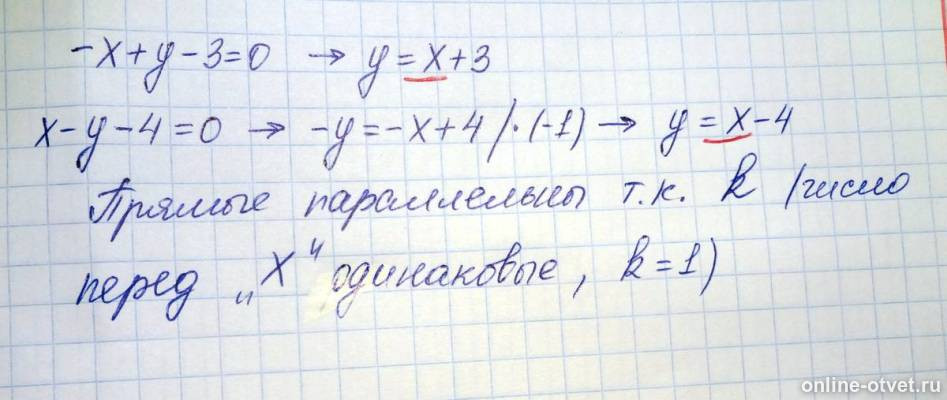 -x+y-3=0 → y=x+3
x-y-4=0 → -y=-x+4 /·(-1) → y=x-4
Прямые параллельны т.к. k (число
перед „x" одинаковые, k=1)
online-otvet.ru